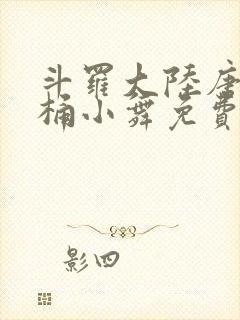 斗羅大陸唐
桶小舞免費
影四